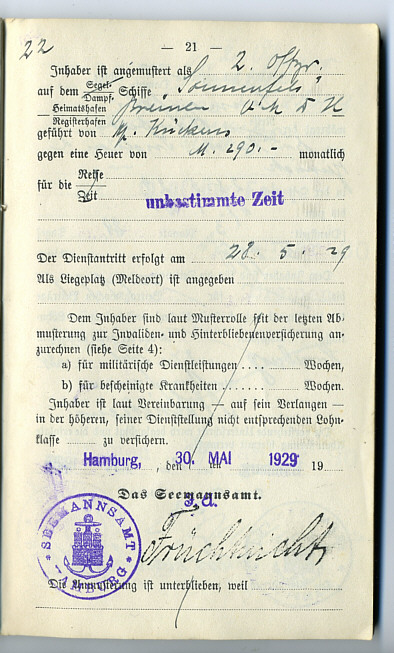 22
— 21 —
Inhaber ist angemustert als 2. Offzr.
auf dem Segel- Dampf- Schiffe "Sonnenfels"
Heimatshafen Registerhafen Bremen
geführt von
gegen eine Heuer von M. 290.- monatlich
für die Reise Zeit unbestimmte Zeit
Der Dienstantritt erfolgt am 28. 5. 29
Als Liegeplatz (Meldeort) ist angegeben
Dem Inhaber sind laut Musterrolle seit der letzten Ab-
musterung zur Invaliden- und Hinterbliebenenversicherung an-
zurechnen (siehe Seite 4):
a) für militärische Dienstleistungen .... Wochen,
b) für bescheinigte Krankheiten ...... Wochen.
Inhaber ist laut Vereinbarung — auf sein Verlangen —
in der höheren, seiner Dienststellung nicht entsprechenden Lohn-
klasse zu versichern.
Hamburg, den 30. MAI 1929 19
Das Seemannsamt.
J.A.
SEEMANNSAMT HAMBURG
Die Anmusterung ist unterblieben, weil